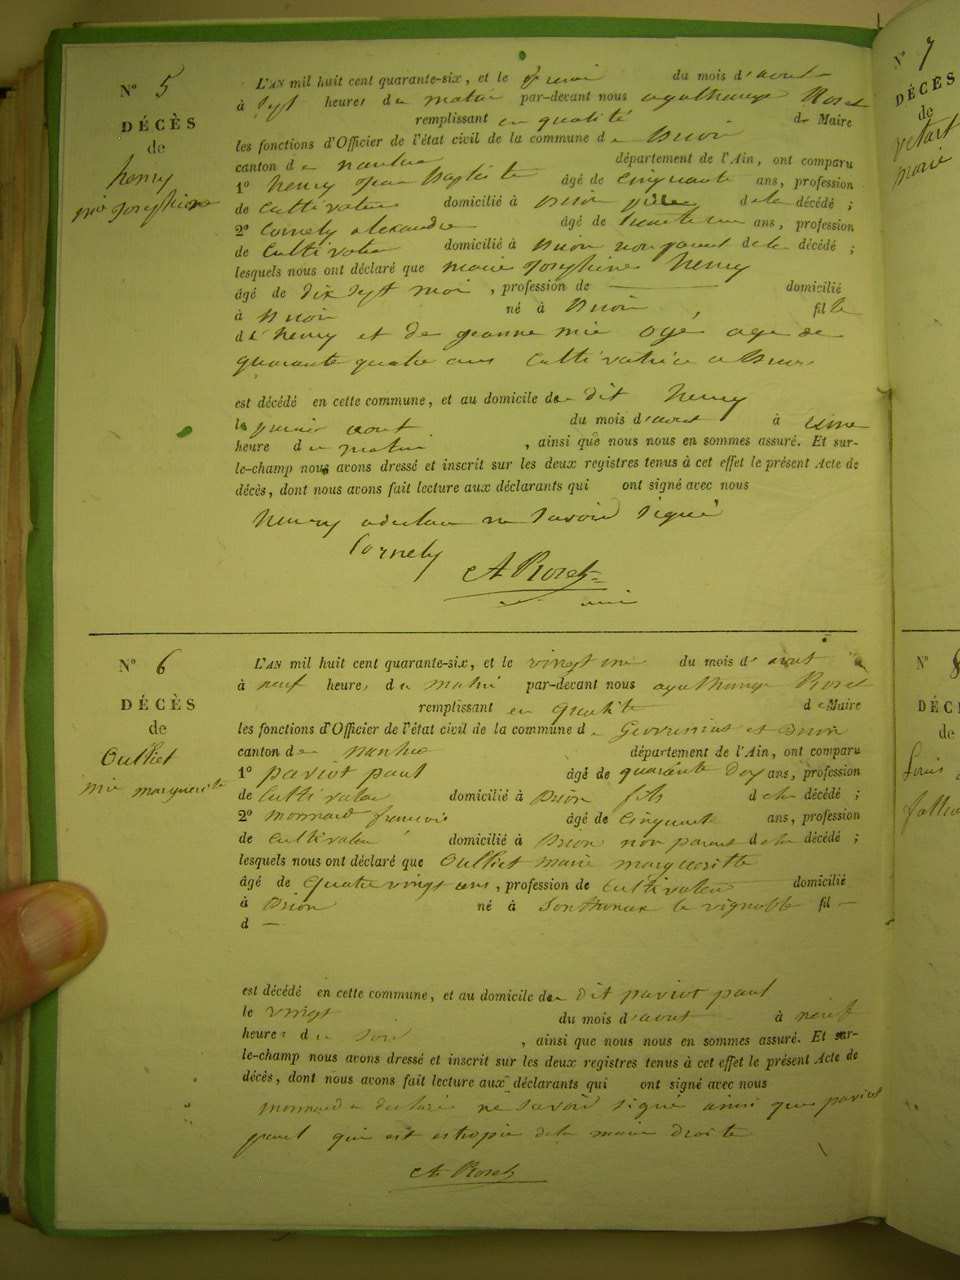 N° 5
DÉCÈS
de
henry
mie Josephine
L'AN mil huit cent quarante-six, et le premier du mois d'aout
à sept heures du matin par-devant nous agathange Roset
remplissant en qualité de Maire
les fonctions d'Officier de l'état civil de la commune de Brion
canton de nantua département de l'Ain, ont comparu
1° henry Jean Baptiste âgé de cinquante ans, profession
de cultivateur domicilié à Brion père de la décédé ;
2° Cornely alexandre âgé de trente un ans, profession
de Cultivateur domicilié à Brion non parent de la décédé ;
lesquels nous ont déclaré que marie Josephine henry
âgé de dix sept moi , profession de — domicilié
à Brion né à Brion , fille
d'henry et de jeanne mie age de
quarante quatre ans Cultivatrice a Brion
est décédé en cette commune, et au domicile de dit henry
le premier aout du mois d'aout à une
heure du matin , ainsi que nous nous en sommes assuré. Et sur-
le-champ nous avons dressé et inscrit sur les deux registres tenus à cet effet le présent Acte de
décès, dont nous avons fait lecture aux déclarants qui ont signé avec nous
henry a declare ne savoir signé
Cornely
A Roset
N° 6
DÉCÈS
de
Oulliet
mie marguerite
L'AN mil huit cent quarante-six, et le vingt un du mois d'aout
à neuf heures du matin par-devant nous agathange Roset
remplissant en qualité de Maire
les fonctions d'Officier de l'état civil de la commune de Geovreissiat et Brion
canton de Nantua département de l'Ain, ont comparu
1° paviot paul âgé de quarante Doy ans, profession
de Cultivateur domicilié à Brion fils de la décédé ;
2° monnard francois âgé de Cinquante ans, profession
de Cultivateur domicilié à Brion non parent de la décédé ;
lesquels nous ont déclaré que Oulliet marie marguerite
âgé de quatre vingt ans, profession de Cultivateur domicilié
à Brion né à Sonthonax le vignoble fil —
d —
est décédé en cette commune, et au domicile de dit paviot paul
le vingt du mois d'aout à neuf
heures du soir , ainsi que nous nous en sommes assuré. Et sur-
le-champ nous avons dressé et inscrit sur les deux registres tenus à cet effet le présent Acte de
décès, dont nous avons fait lecture aux déclarants qui ont signé avec nous
monnard a declaré ne savoir signé ainsi que paviot
paul qui est estropié de la main droite
A Roset
N° 7
DÉCÈS
de
marie
N° 8
DÉCÈ
de
Louis